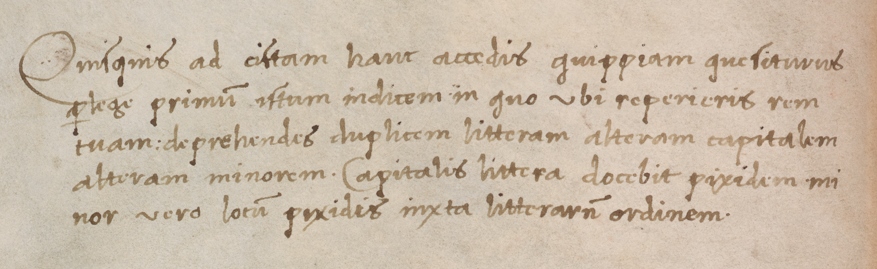 Quisquis ad cistam hanc accedis quippiam quesiturus
ꝑlege primū istum indicem in quo vbi repereris rem
tuam: deprehendes duplicem litteram alteram capitalem
alteram minorem. Capitalis littera docebit pixidem mi
nor vero locū pixidis iuxta litterarū ordinem.